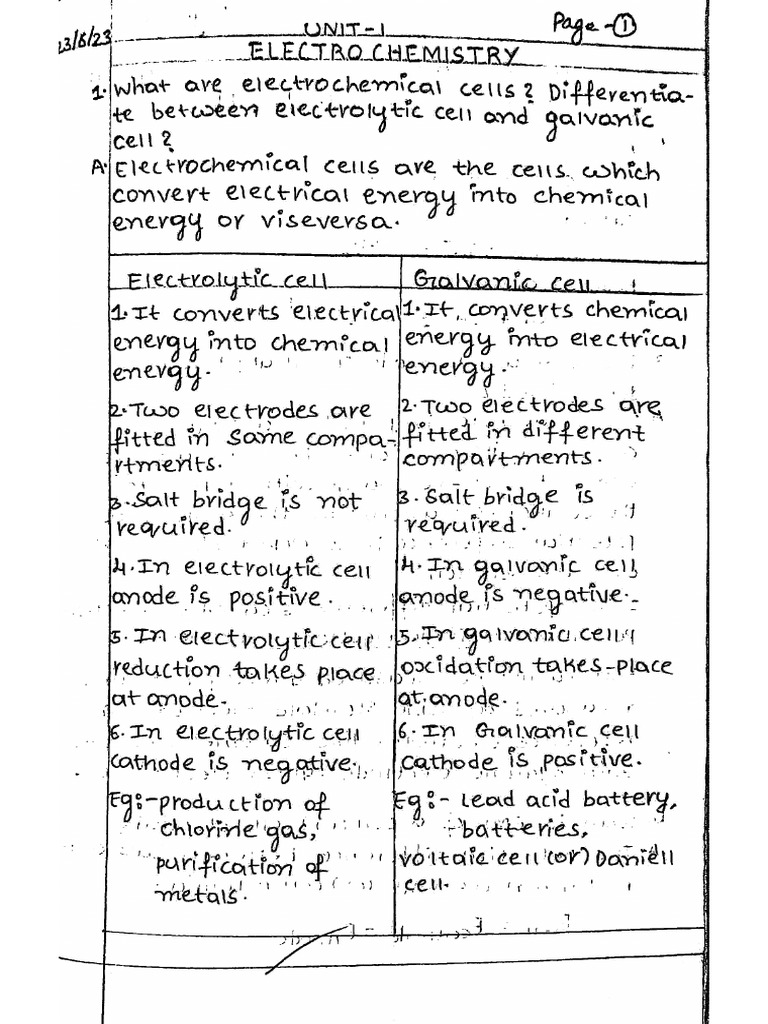 23/8/23
UNIT-1
Page-①
ELECTROCHEMISTRY
1. What are electrochemical cells? Differentia-
te between electrolytic cell and galvanic
cell?
A. Electrochemical cells are the cells which
convert electrical energy into chemical
energy or viseversa.
Electrolytic cell
1. It converts electrical
energy into chemical
energy.
2. Two electrodes are
fitted in same compa-
rtments.
3. Salt bridge is not
required.
4. In electrolytic cell
anode is positive.
5. In electrolytic cell
reduction takes place
at anode.
6. In electrolytic cell
cathode is negative.
Eg:- production of
chlorine gas,
purification of
metals.
Galvanic cell
1. It converts chemical
energy into electrical
energy.
2. Two electrodes are
fitted in different
compartments.
3. Salt bridge is
required.
4. In galvanic cell
anode is negative.
5. In galvanic cell
oxidation takes-place
at anode.
6. In Galvanic cell
cathode is positive.
Eg:- Lead acid battery,
batteries,
voltaic cell (or) Daniell
cell.